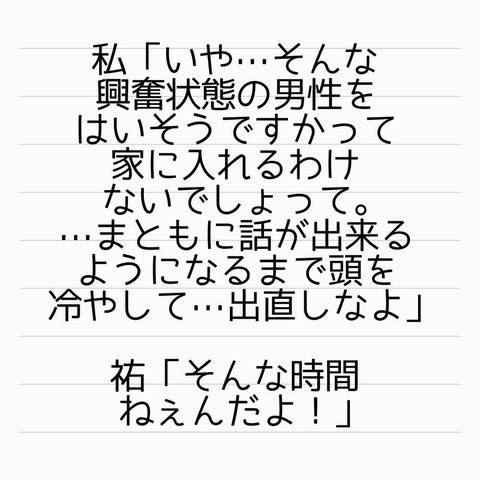 私「いや…そんな
興奮状態の男性を
はいそうですかって
家に入れるわけ
ないでしょって。
…まともに話が出来る
ようになるまで頭を
冷やして…出直しなよ」
祐「そんな時間
ねぇんだよ！」